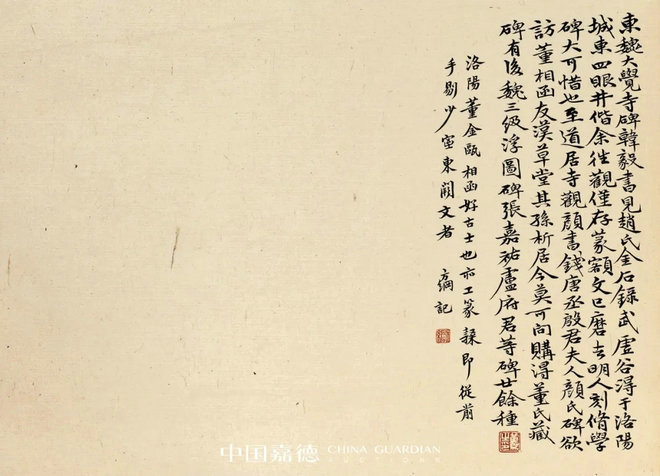 東魏大覺寺碑韓毅書見趙氏金石錄武虛谷得于洛陽
城東四眼井偕余往觀僅存篆額文已磨去明人刻脩學
碑大可惜也至道居寺觀顏書錢唐丞殷君夫人顏氏碑欲
訪董相函友漠草堂其孫析居今莫可問購得董氏藏
碑有後魏三級浮圖碑張嘉祐盧府君等碑廿餘種
洛陽董金甌相函好古士也亦工篆隸即從前
手剔少室東闕文者 易記
中国嘉德 CHINA GUARDIAN
AUCTIONS